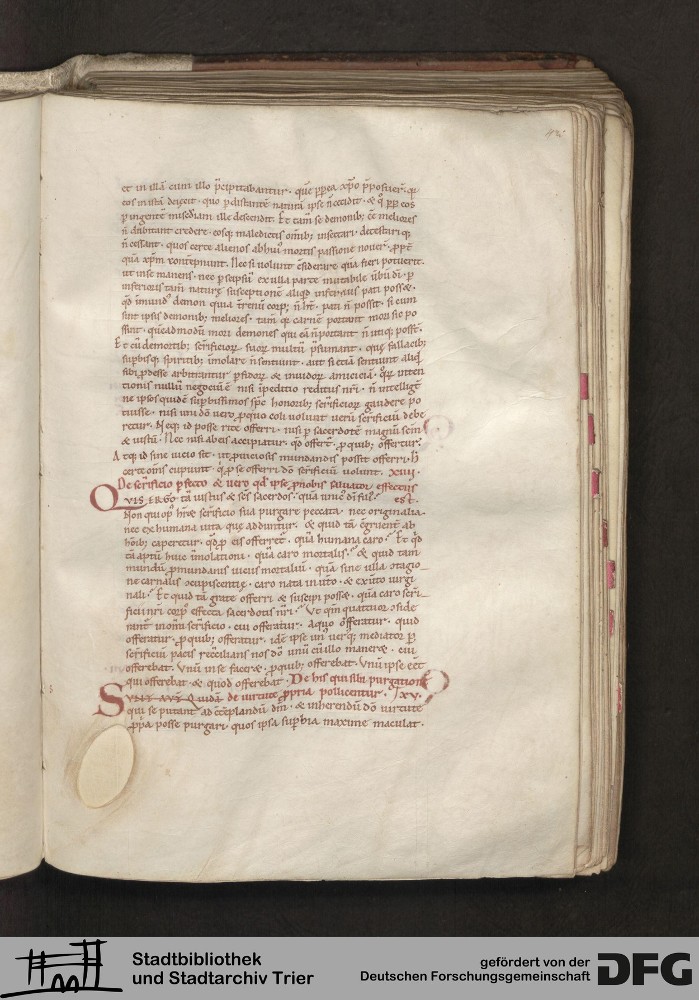 42
et in illā cum illo p̄cipitabantur · quę pp̄ea xp̄o p̄posuer̄ · q̄
eos in istā deiecit · quo p̄ distantē naturā ipse n̄ cecidit · & q̄ p̄p̄ eos
p̄ ingentē mis̄c̄diam ille descendit · Et tam̄ se demonib; ēē meliores
n̄ dubitant credere · eosq; maledictis om̄ib; insectari · detestari q;
n̄ cessant · quos certe alienos ab hui᷒ mortis passione nouer̄ · p̄p̄t̄
quā xp̄m contempnunt · Nec si uolunt c̄siderare quā fieri potuerit ·
ut in se manens · nec p̄ se ipsū ex ulla parte mutabile ūbū dī · p̄
inferioris tam̄ naturę susceptionē aliqd inferius pati posset ·
qd īmund᷒ demon quia t̄renū corp᷒ n̄ ht̄ · pati n̄ possit · Si cum
sint ipsi demonib; meliores · tam̄ q carnē portant mori sic po
ssunt · quēadmodū mori demones qui eā n̄ portant n̄ utiq; poss̄t ·
Et cū de mortib; sc̄rificiorū suorū multū p̄sumant · quę fallacib;
supbisq; spiritib; īmolare n̄ sentiunt · aut si etiā sentiunt aliqd
sibi p̄desse arbitrantur p̄fidorū & inuidorū amiciciā · quorū inten
tionis nullū negociū ē nisi īpeditio reditus nr̄i · n̄ intelligt̄
ne ipsos quidē supbissimos sps̄ honorib; sc̄rificiorū gaudere po
tuisse · nisi uni dō uero p̄ quo coli uolunt uerū sc̄rificiū debe
retur · Neq; id posse rite offerri · nisi p̄ sacerdotē magnū sc̄m
& iustū · Nec nisi ab eis accipiatur · qd offert̄ · p̄ quib; offertur ·
Atq; id sine uicio sit · ut p̄ uiciosis mundandis possit offerri · h̄
certe om̄s cupiunt · q p̄ se offerri dō sc̄rificiū uolunt · XIIII ·
De sc̄rificio p̄fecto & uero qd ipse p̄ nobis saluator effectus
QVIS ERGO tā iustus & scs̄ sacerdos · quā unic᷒ dī fili᷒ est ·
Non qui op᷒ hr̄et sc̄rificio sua purgare peccata · nec originalia ·
nec ex humana uita quę adduntur · & quid tā c̄gruent̄ ab
hōib; caperetur · qd p̄ eis offerret̄ · quā humana caro · Et qd
tā aptū huic īmolationi · quā caro mortalis · & quid tam
mundū p̄ mundanis uiciis mortaliū · quā sine ulla c̄tagio
ne carnalis c̄cupiscentię · caro nata in ut̄o · & ex ut̄o uirgi
nali · Et quid tā grate offerri & suscipi posset · quā caro sc̄ri
ficii nr̄i corp᷒ effecta sacerdotis nr̄i · Vt qm̄ quattuor c̄side
rant̄ in om̄i sc̄rificio · cui offeratur · a quo offeratur · quid
offeratur · p̄ quib; offeratur · idē ipse un᷒ uer᷒q; mediator p̄
sc̄rificiū pacis rec̄cilians nos dō unū cū illo maneret · cui
offerebat · Vnū in se faceret · p̄ quib; offerebat · Vnū ipse eēt
qui offerebat · & quod offerebat · De his qui sibi purgationē
SVNT AVT̄ Quidā de uirtute p̄pria pollicentur · XV ·
qui se putant ad c̄tēplandū dm̄ · & inherendū dō uirtute
p̄p̄a posse purgari · quos ipsa supbia maxime maculat ·
Stadtbibliothek
und Stadtarchiv Trier
gefördert von der
Deutschen Forschungsgemeinschaft
DFG